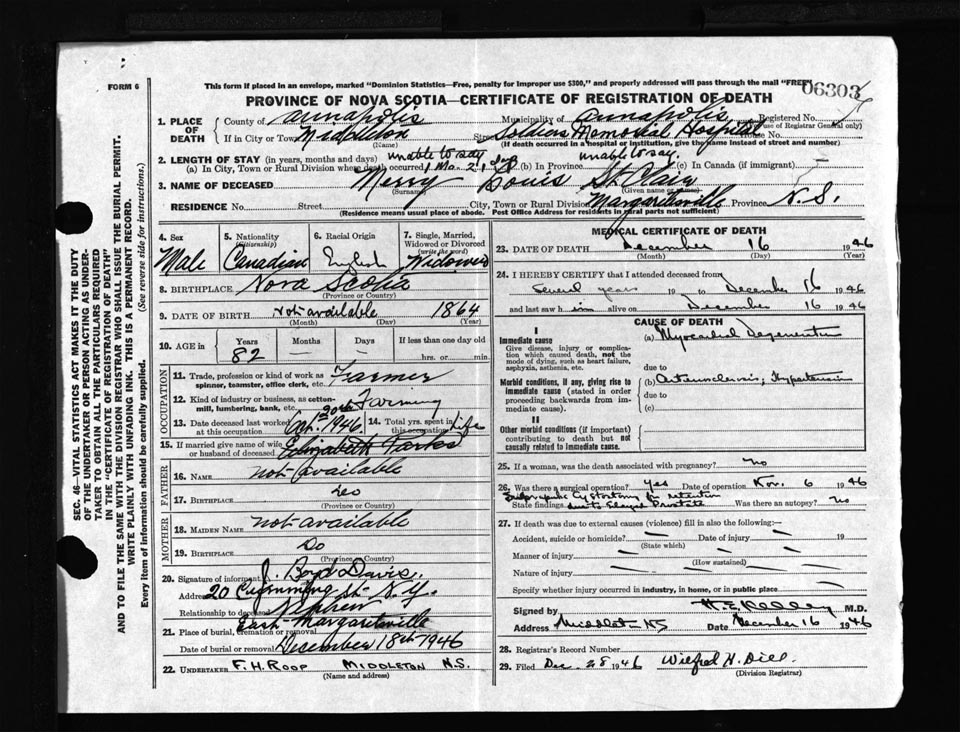 FORM 6
This form if placed in an envelope, marked "Dominion Statistics—Free, penalty for improper use $300," and properly addressed will pass through the mail "FREE"
06303
PROVINCE OF NOVA SCOTIA—CERTIFICATE OF REGISTRATION OF DEATH
1. PLACE OF DEATH
County of Annapolis Municipality of Annapolis Registered No.
(For use of Registrar General only)
If in City or Town Middleton Street Soldiers Memorial Hospital House No.
(Name) (If death occurred in a hospital or institution, give the name instead of street and number)
2. LENGTH OF STAY (in years, months and days) unable to say unable to say.
(a) In City, Town or Rural Division where death occurred 1 Mo. 2 (b) In Province (c) In Canada (if immigrant) —
3. NAME OF DECEASED Merry Louis St Clair
(Surname) (Given name or names)
RESIDENCE No. Street City, Town or Rural Division Margaretsville Province N.S.
(Residence means usual place of abode. Post Office Address for residents in rural parts not sufficient)
4. Sex Male
5. Nationality (Citizenship) Canadian
6. Racial Origin English
7. Single, Married, Widowed or Divorced (write the word) Widowed
8. BIRTHPLACE Nova Scotia
(Province or Country)
9. DATE OF BIRTH not available 1864
(Month) (Day) (Year)
10. AGE in Years 82 Months — Days — If less than one day hrs. or min.
OCCUPATION
11. Trade, profession or kind of work as spinner, teamster, office clerk, etc. Farmer
12. Kind of industry or business, as cotton-mill, lumbering, bank, etc. Farming
13. Date deceased last worked at this occupation 20th 1946
14. Total yrs. spent in this occupation Life
15. If married give name of wife or husband of deceased Elizabeth Parks
FATHER
16. Name not available
17. Birthplace Do
(Province or Country)
MOTHER
18. Maiden Name not available
19. Birthplace Do
(Province or Country)
20. Signature of informant J. Boyd Davis.
Address 20 St. N.Y.
Relationship to deceased Nephew
21. Place of burial, cremation or removal East Margaretsville
Date of burial or removal December 18th 1946
22. UNDERTAKER F. H. ROOP MIDDLETON N.S.
(Name and address)
MEDICAL CERTIFICATE OF DEATH
23. DATE OF DEATH December 16 1946
(Month) (Day) (Year)
24. I HEREBY CERTIFY that I attended deceased from
Several years 19 to December 16 1946
and last saw him alive on December 16 1946
CAUSE OF DEATH
I
Immediate cause
Give disease, injury or complication which caused death, not the mode of dying, such as heart failure, asphyxia, asthenia, etc.
(a) Myocardial Degeneration
due to
Morbid conditions, if any, giving rise to immediate cause (stated in order proceeding backwards from immediate cause).
(b) Arteriosclerosis, Hypertension
due to
(c)
II
Other morbid conditions (if important) contributing to death but not causally related to immediate cause.
25. If a woman, was the death associated with pregnancy? no
26. Was there a surgical operation? yes Date of operation Nov. 6 1946
Suprapubic Cystostomy for retention
State findings due to Prostate Was there an autopsy? no
27. If death was due to external causes (violence) fill in also the following:—
Accident, suicide or homicide? — Date of injury — 19
(State which)
Manner of injury — —
(How sustained)
Nature of injury — —
Specify whether injury occurred in industry, in home, or in public place —
Signed by H. E. Kelley M.D.
Address Middleton NS Date December 16 1946
28. Registrar's Record Number
29. Filed Dec. 28 1946 Wilfred H. Dill.
(Division Registrar)
SEC. 46—VITAL STATISTICS ACT MAKES IT THE DUTY
OF THE UNDERTAKER OR PERSON ACTING AS UNDERTAKER TO OBTAIN ALL THE PARTICULARS REQUIRED
IN THE "CERTIFICATE OF REGISTRATION OF DEATH"
AND TO FILE THE SAME WITH THE DIVISION REGISTRAR WHO SHALL ISSUE THE BURIAL PERMIT.
WRITE PLAINLY WITH UNFADING INK. THIS IS A PERMANENT RECORD.
Every item of information should be carefully supplied. (See reverse side for instructions.)